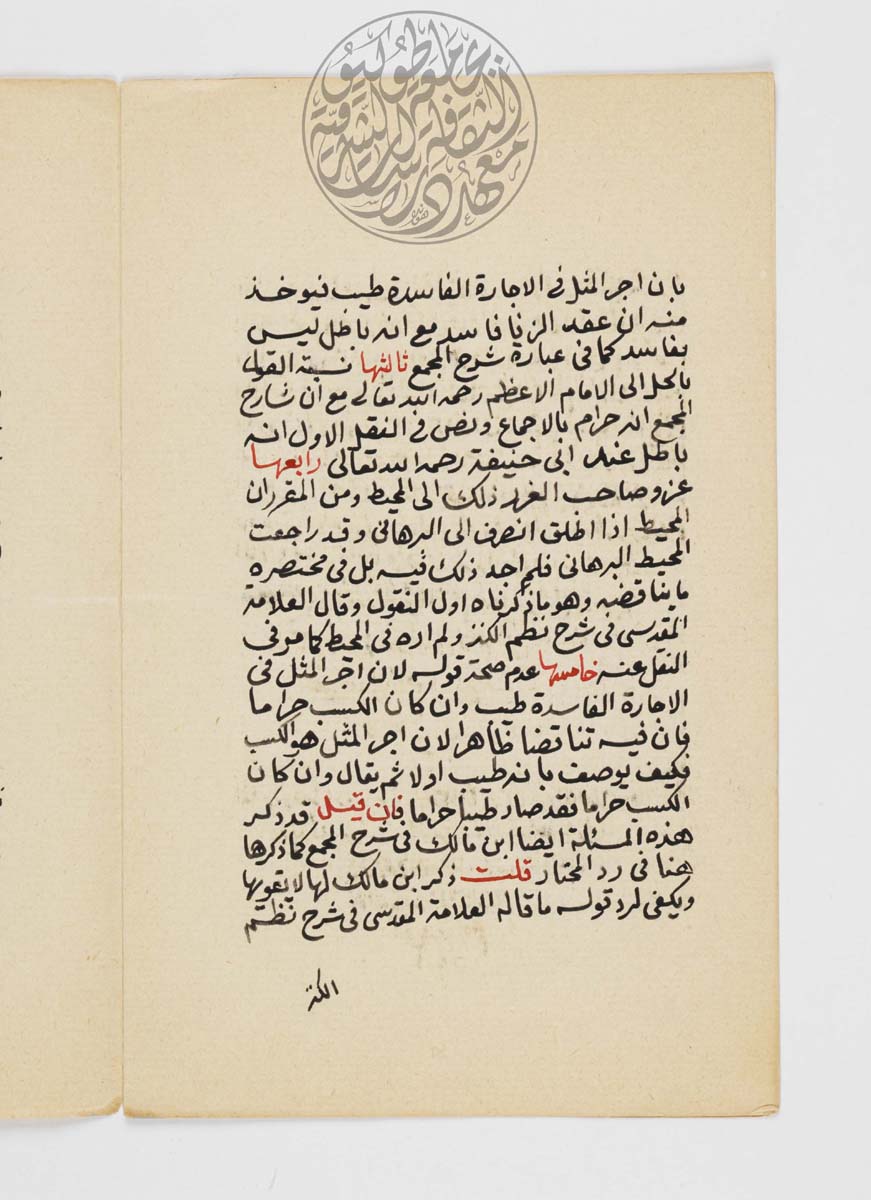 جامعة طوكيو
معهد دراسات الثقافة الشرقية
بان اجر المثل في الاجارة الفاسدة طيب فيوخذ
منه ان عقد الزنا فاسد مع انه باطل ليس
بفاسد كما في عبارة شرح المجمع ثالثها نسبة القول
بالحل الى الامام الاعظم رحمه الله تعالى مع ان شارح
المجمع انه حرام بالاجماع ونص في النقل الاول انه
باطل عند ابى حنيفة رحمه الله تعالى رابعها
عزو صاحب الغرر ذلك الى المحيط ومن المقرران
المحيط اذا اطلق انصرف الى البرهانى وقد راجعت
المحيط البرهانى فلم اجد ذلك فيه بل في مختصره
ما يناقضه وهو ما ذكرناه اول النقول وقال العلامة
المقدسي في شرح نظم الكنز ولم اره في المحيط كما مر في
النقل عنه خامسها عدم صحة قوله لان اجر المثل في
الاجارة الفاسدة طيب وان كان الكسب حراما
فان فيه تناقضا ظاهرا لان اجر المثل هو الكسب
فكيف يوصف بانه طيب اولا ثم يقال وان كان
الكسب حراما فقد صار طيبا حراما فان قيل قد ذكر
هذه المسئلة ايضا ابن مالك في شرح المجمع كما ذكرها
هنا في رد المحتار قلت ذكر ابن مالك لها لا يقويها
ويكفى لرد قوله ما قاله العلامة المقدسى في شرح نظم
الكنز